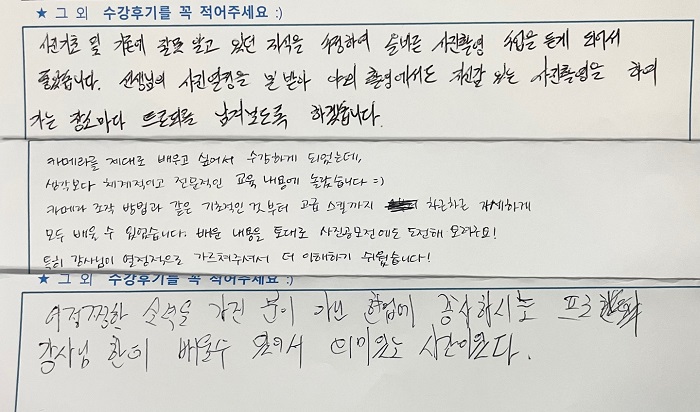 ★ 그 외 수강후기를 꼭 적어주세요 :)
사진기초 및 기존에 잘못 알고 있던 지식을 수정하여 올바른 사진촬영 수업을 듣게 되어서
좋았습니다. 선생님의 사진열정을 본 받아 야외 촬영에서도 자신감 있는 사진촬영을 하며
가는 장소마다 트로피를 남겨보도록 하겠습니다.
카메라를 제대로 배우고 싶어서 수강하게 되었는데,
생각보다 체계적이고 전문적인 교육 내용에 놀랐습니다 =)
카메라 조작 방법과 같은 기초적인 것부터 고급 스킬까지 차근차근 자세하게
모두 배울 수 있었습니다. 배운 내용을 토대로 사진공모전에도 도전해 보려구요!
특히 강사님이 열정적으로 가르쳐주셔서 더 이해하기 쉬웠습니다!
★ 그 외 수강후기를 꼭 적어주세요 :)
어정쩡한 소속을 가진 분이 아닌 현업에 종사하시는 프로
강사님 한테 배울수 있어서 의미있는 시간이었다.